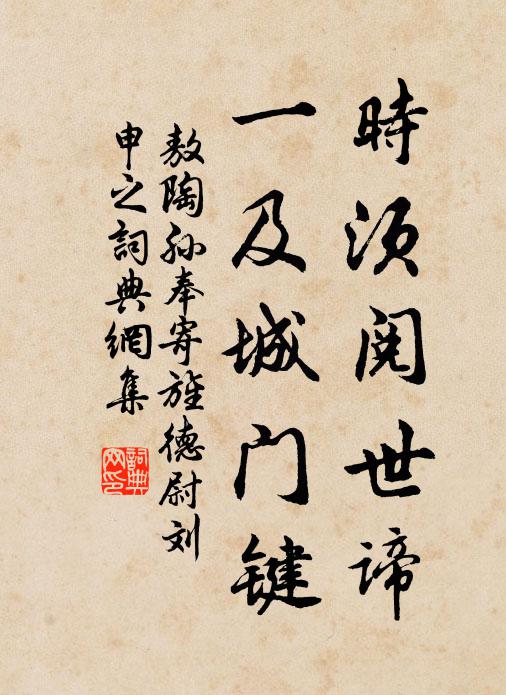 時须阅世谛
一及城门键
敖陶孙奉寄旌德尉刘
申之詞典網集
詞典网印